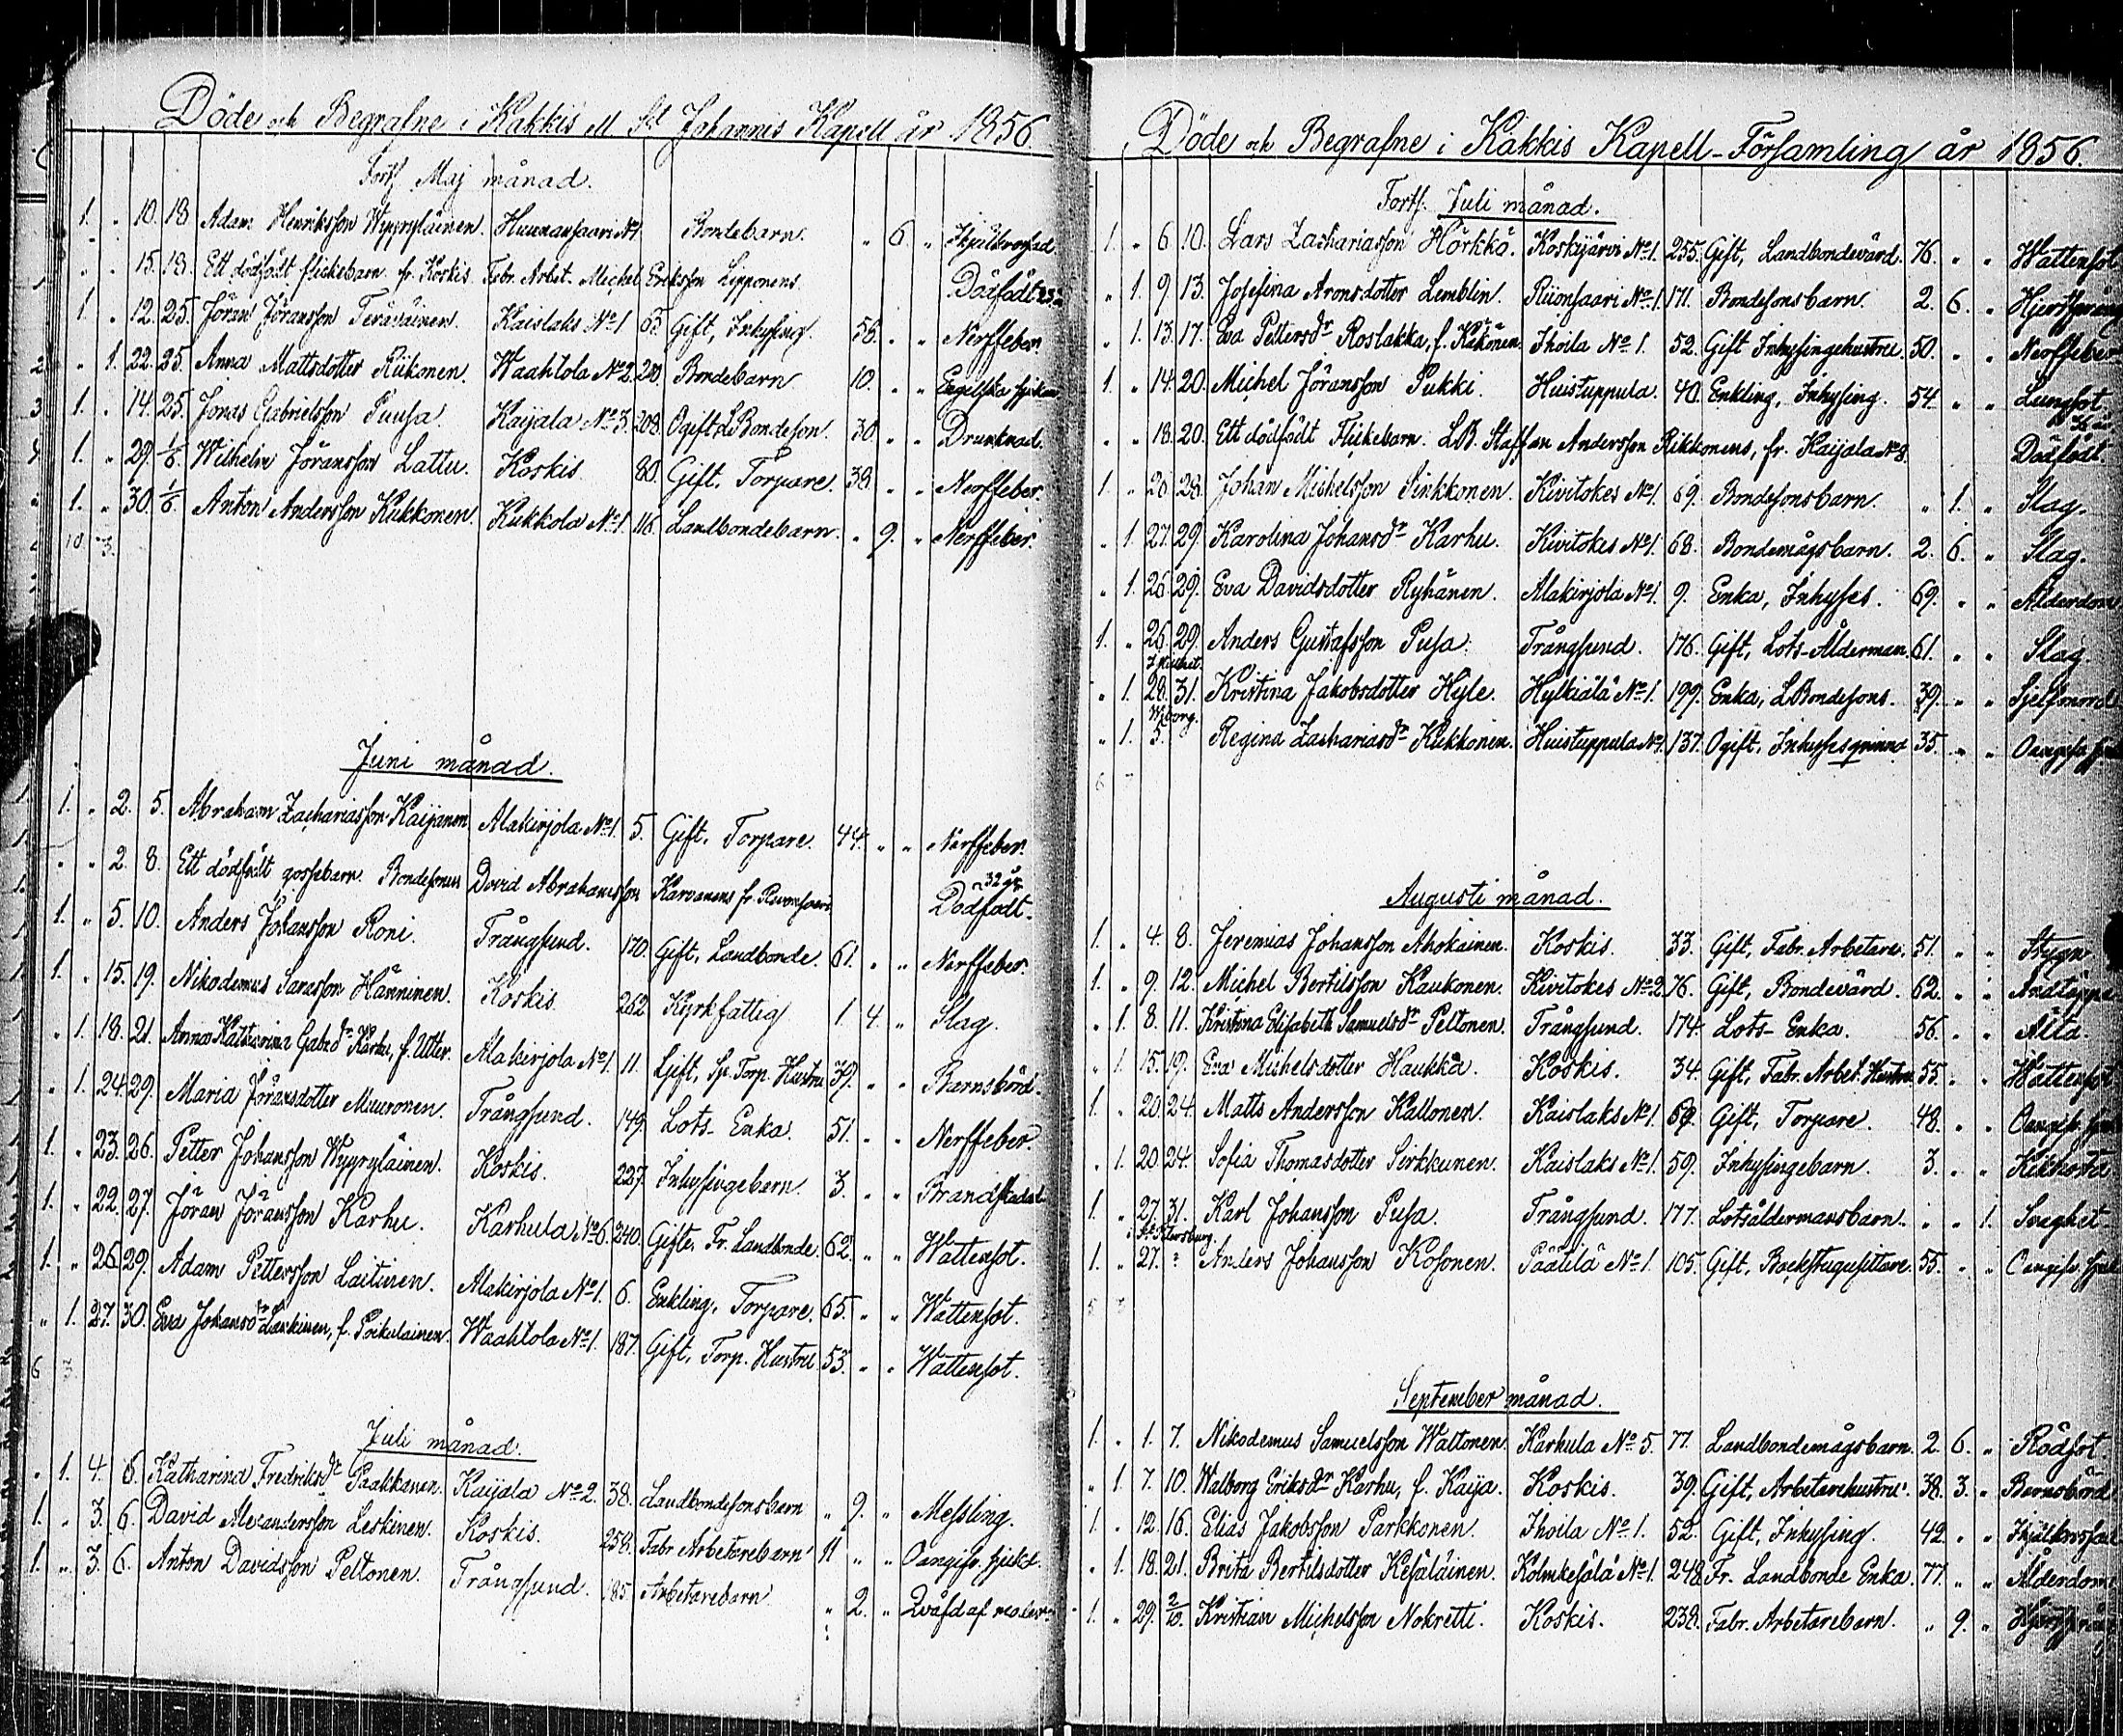 Döde och Begrafne i Kakkis el. S:t Johannis Kapell år 1856.
Forts. Maj månad.
1. " 10. 18. Adam Henriksson Wypryläinen. Huunansaari No 1. Bondebarn. " 6. "
" " 15. 18. Ett dödfödt flickebarn fr. Koskis Fabr. Arbet. Michel Eriksson Lipponens. Dödfödt
1. " 12. 25. Jöran Jöransson Teräväinen. Kaislaks No 1 63. Gift, Inhysing. 58. " " Nerffeber.
" 1. 22. 25. Anna Mattsdotter Riikonen. Waahtola No 2. 210. Bondebarn 10. " " Engelska sjukan
1. " 14. 25. Jonas Gabrielsson Puusa. Kaijala No 3. 208. Ogift L Bondeson. 30. " " Drunknad.
1. " 29. 1/6. Wilhelm Jöransson Lattu. Koskis 80. Gift. Torpare. 38. " " Nerffeber.
1. " 30. 1/6. Anton Andersson Kukkonen. Kukkola No 1. 116. Landbondebarn. " 9. " Nerffeber.
10. 3.
Juni månad.
1. " 2. 5. Abraham Zachariasson Kaijanen Alakirjola No 1. 5. Gift. Torpare. 44. " " Nerffeber.
" " 2. 8. Ett dödfödt gossebarn. Bondesonens David Abrahamsson Karvanens fr. 32 år Dödfödt.
1. " 5. 10. Anders Johansson Roni. Trångsund. 170. Gift, Landbonde. 61. " " Nerffeber.
1. " 15. 19. Nikodemus Sarasson Hänninen. Koskis. 262 Kyrkfattig 1. 4. " Slag.
" 1. 18. 21. Anna Katharina Gabr.dr Karhu, f. Utter. Alakirjola No 1. 11. Gift, Torp. Hustru 39. " " Barnsbörd.
" 1. 24. 29. Maria Jöransdotter Muuronen. Trångsund. 149. Lots-Enka. 51. " " Nerffeber.
1. " 23. 26. Petter Johansson Wypryläinen. Koskis. 227. Inhysingebarn. 3. " " Brandskadad
1. " 22. 27. Jöran Jöransson Karhu. Karhula No 6. 240. Gifte, Fr. Landbonde. 62. " " Wattensot.
1. " 26. 29. Adam Pettersson Laitinen. Alakirjola No 1. 6. Enkling, Torpare. 65. " " Wattensot.
" 1. 27. 30. Eva Johansdr Laukinen, f. Poikulainen. Waahtola No 1. 187. Gift, Torp. Hustru 53. " " Wattensot.
6
Juli månad.
" 1. 4. 6. Katharina Fredriksdr Paakkanen. Kaijala No 2. 38. Landbondesonsbarn " 9. " Messling.
1. " 3. 6. David Alexandersson Leskinen. Koskis. 258. Fabr. Arbetarebarn 11 " " Oangifv. sjukd.
1. " 3. 6. Anton Davidsson Peltonen. Trångsund. 185. Arbetarebarn " 2. " Qväfd af
Döde och Begrafne i Kakkis Kapell-Församling år 1856.
Forts. Juli månad.
1. " 6. 10. Lars Zachariasson Hörkkö. Koskijärvi No 1. 255. Gift, Landbondevärd. 76. " " Wattensot
" 1. 9. 13. Josefina Aronsdotter Lemblin. Riionsaari No 1. 171. Bondesonsbarn. 2. 6. "
" 1. 13. 17. Eva Pettersdr Roslakka, f. Käkönen. Ihoila No 1. 52. Gift Inhysingehustru. 50. " " Nerffeber
1. " 14. 20. Michel Jöransson Pukki. Huistuppula. 40. Enkling, Inhysing. 54 " " Lungsot
" " 18. 20. Ett dödfödt Flickebarn. LB. Staffan Andersson Riikkonens, fr. Kaijala No 8. Dödfödt.
1. " 26. 28. Johan Michelsson Sirkkonen. Kivitokes No 1. 69. Bondesonsbarn. " 1. " Slag.
" 1. 27. 29. Karolina Johansdr Karhu. Kivitokes No 1. 68. Bondemågsbarn. 2. 6. " Slag.
" 1. 26. 29. Eva Davidsdotter Ryhänen. Alakirjola No 1. 9. Enka, Inhyses. 69. " " Ålderdom
1. " 26. 29. Anders Gustafsson Pusa. Trångsund. 176. Gift, Lots-Ålderman. 61. " " Slag.
" 1. 28. 31. Kristina Jakobsdotter Hyle. Hylkiälä No 1. 199. Enka, LBondesons. 39. " " Sjelfmord
Wiborg.
" 1. 5. Regina Zachariasdr Kukkonen. Huistuppula No 1. 137. Ogift, Inhysesqvinna 35. " "
6 7
Augusti månad.
1. " 4. 8. Jeremias Johansson Ahokainen. Koskis. 33. Gift, Fabr. Arbetare. 51. " " Stygn
1. " 9. 12. Michel Bertilsson Kaukonen. Kivitokes No 2. 76. Gift, Bondevärd. 62. " " Andtäppa
" 1. 8. 11. Kristina Elisabeth Samuelsdr Peltonen. Trångsund. 174. Lots-Enka. 56. " " Ålta.
" 1. 15. 19. Eva Michelsdotter Haukka. Koskis. 34. Gift, Fabr. Arbet. Hustru 55. " " Wattensot
1. " 20. 24. Matts Andersson Kallonen. Kaislaks No 1. 69. Gift, Torpare. 48. " "
" 1. 20. 24. Sofia Thomasdotter Sirkkunen. Kaislaks No 1. 59. Inhysingebarn. 3. " " Kikhosta
1. " 27. 31. Karl Johansson Pusa. Trångsund. 177. Lotsåldermansbarn. " " 1. Svaghet
i St. Petersburg.
1. " 27. " Anders Johansson Kosonen. Päätilä No 1. 105. Gift, Backstugusittare. 55. " "
5 3
September månad.
1. " 1. 7. Nikodemus Samuelsson Wattonen. Karhula No 5. 77. Landbondemågsbarn. 2. 6. " Rödsot
" 1. 7. 10. Walborg Eriksdr Karhu, f. Kaija. Koskis. 39. Gift, Arbetarehustru. 38. 3. " Barnsbörd
1. " 12. 16. Elias Jakobsson Parkkonen. Ihoila No 1. 52. Gift, Inhysing. 42. " "
" 1. 18. 21. Brita Bertilsdotter Kesäläinen. Kolmkesälä No 1. 248. Fr. Landbonde Enka. 77. " " Ålderdom
1. " 29. 2/10. Kristian Michelsson Nokretti. Koskis. 238. Fabr. Arbetarebarn. " 9. "